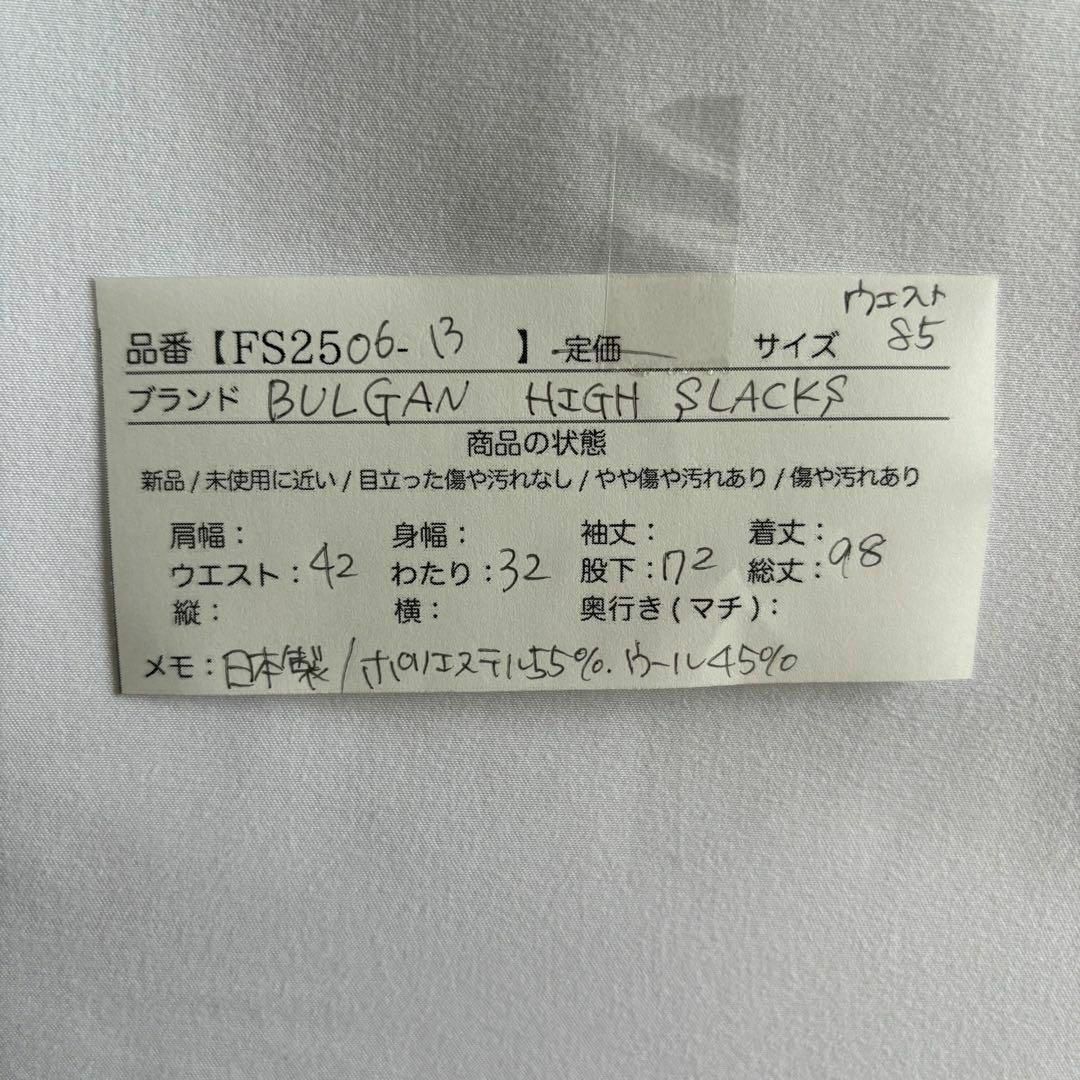 ウエスト
品番【FS2506-13 】定価 サイズ 85
ブランド BULGAN HIGH SLACKS
商品の状態
新品/未使用に近い/目立った傷や汚れなし/やや傷や汚れあり/傷や汚れあり
肩幅: 身幅: 袖丈: 着丈:
ウエスト:42 わたり:32 股下:72 総丈:98
縦: 横: 奥行き(マチ):
メモ:日本製/ポリエステル55%.ウール45%